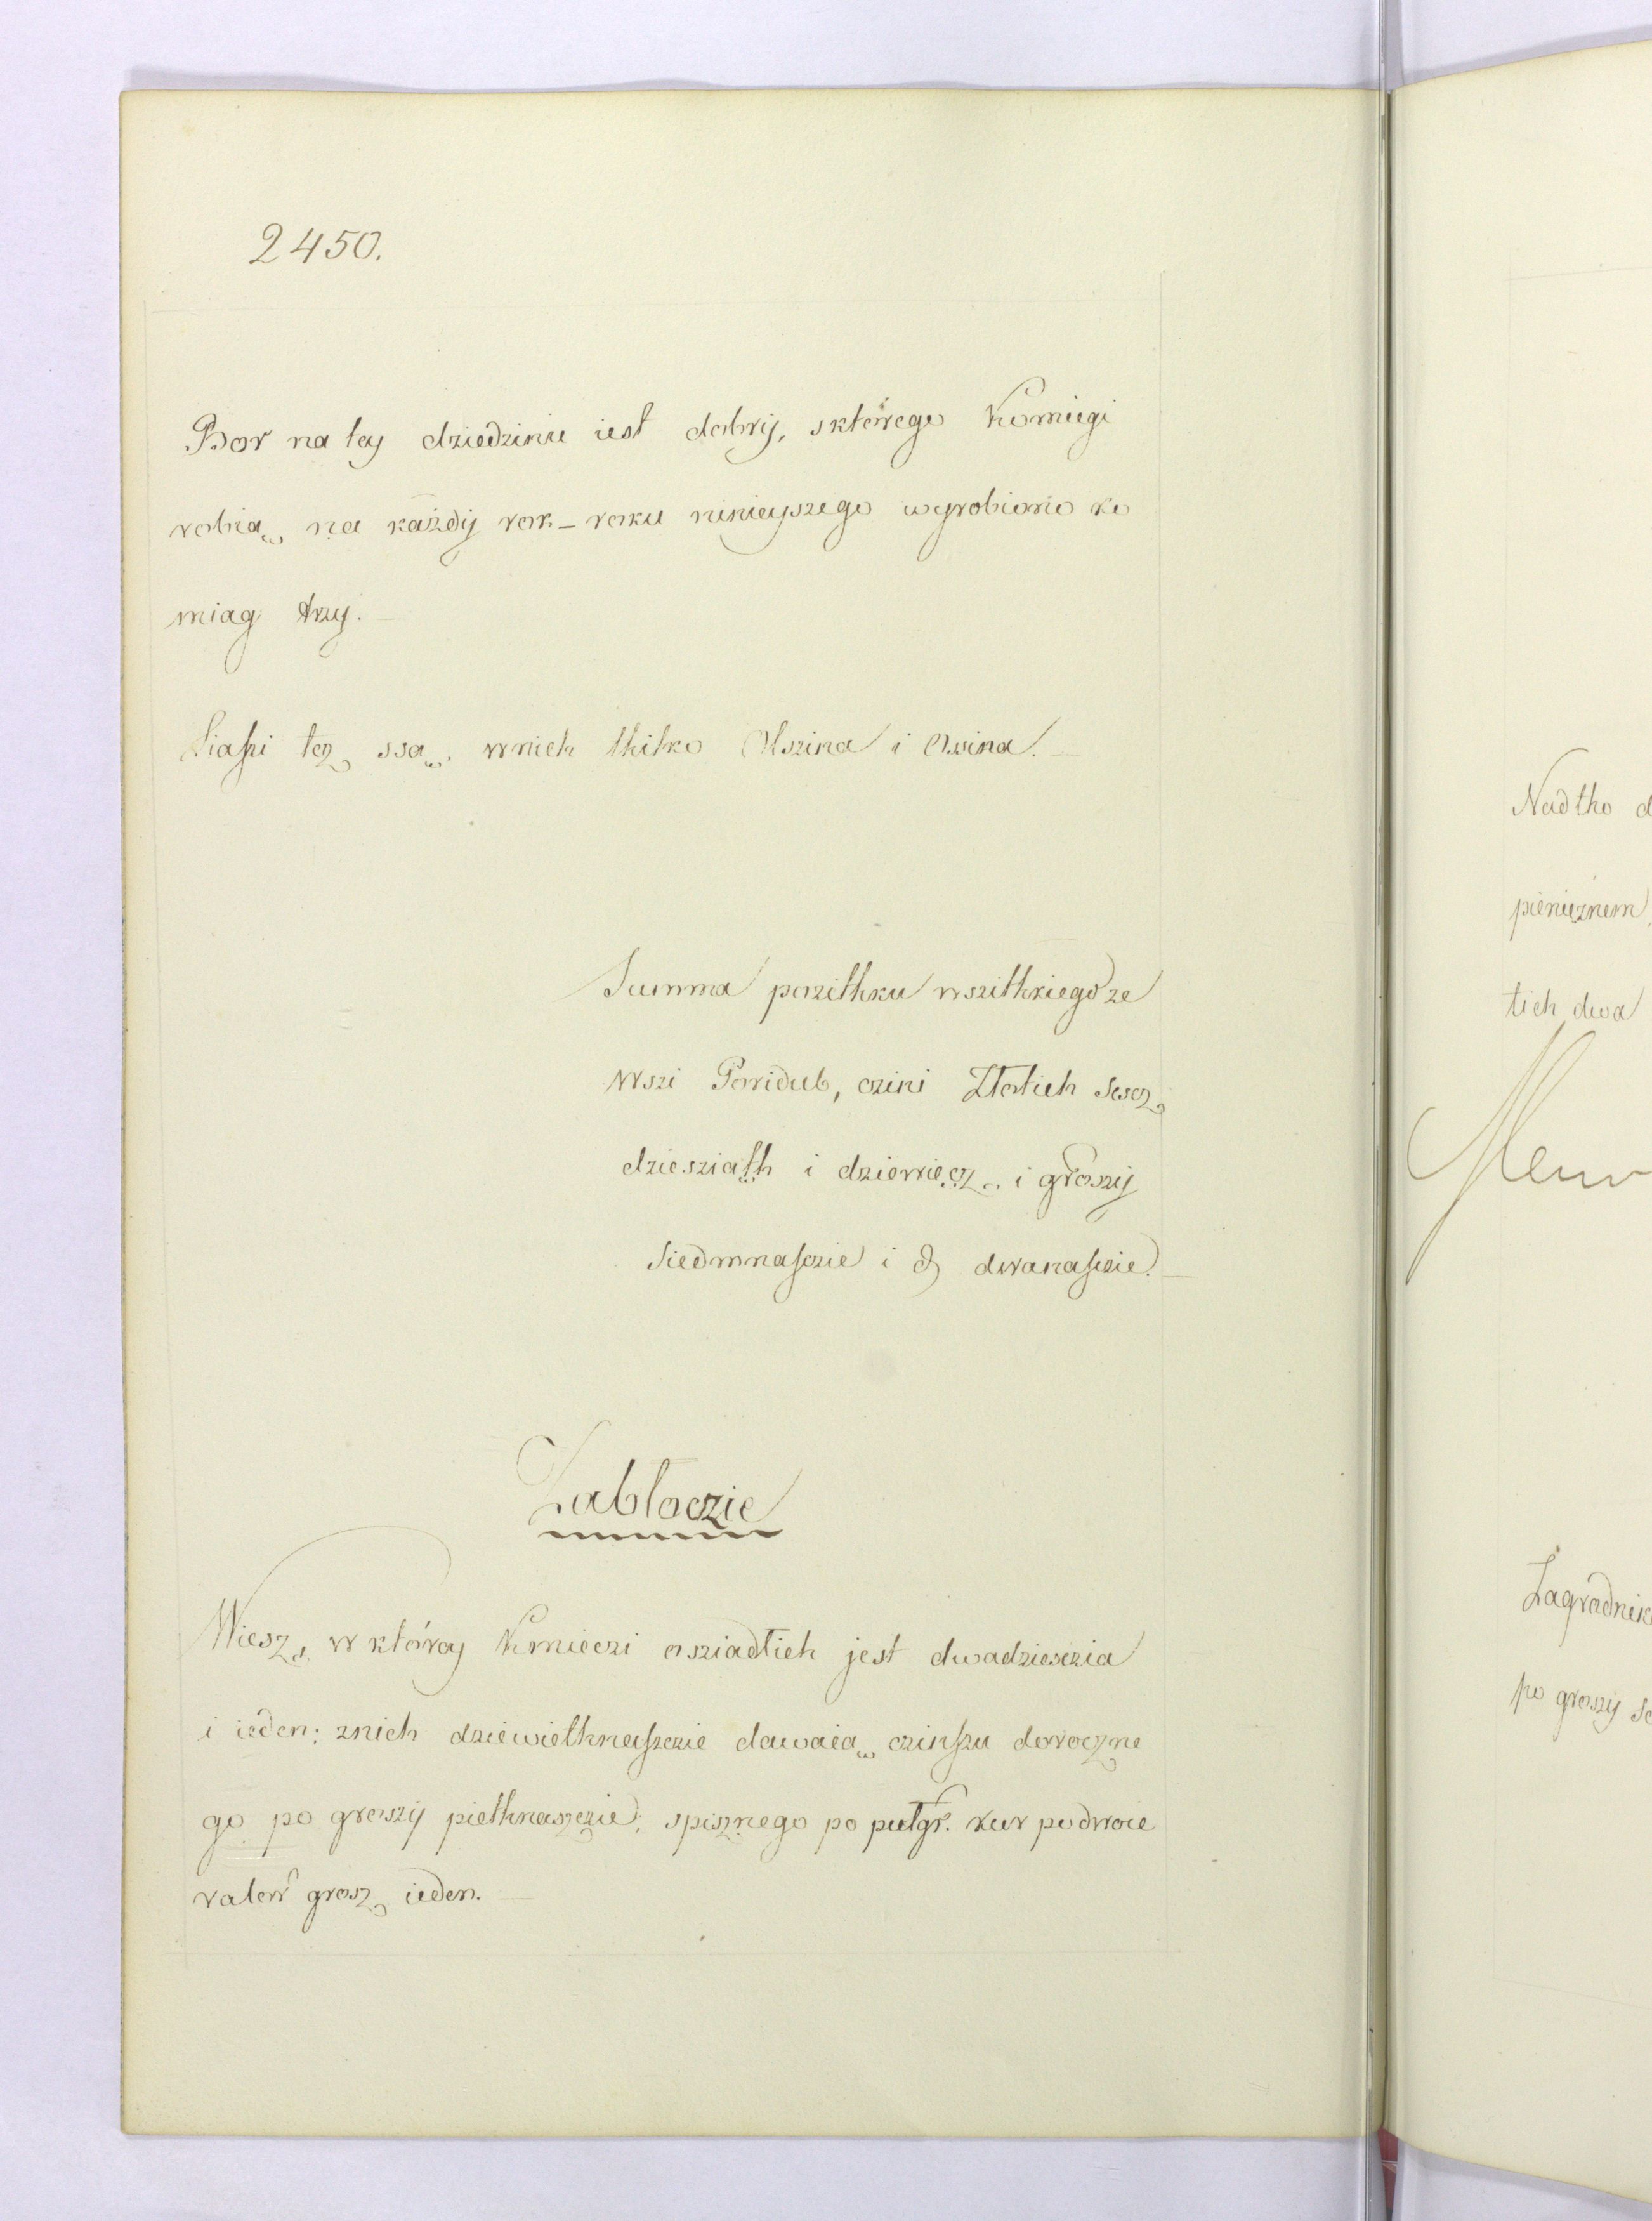 2450.
Bor na tey dziedzinie iest dobrij, sktórego Komiegi
robią na każdij rok_ roku ninieyszego wyrobiono ko
miag trzy.
Liassi tez ssą, wnich thilko Olszina i Osina.
Summa pozithku wszithkiego ze
wszi Powidub, czini Złotich Sescz
dziesziąth i dziewięcz i groszij
Siedmnascie i ₰ dwanascie.
Zabłoczie
Wiesz, w któroy Kmieczi osziadłich jest dwadziesczia
i ieden; znich dziewiethnasczie dawaią czinszu doroczne
go po groszij piethnasczie, spisznego po pułgr. kur podwoie
valor grosz ieden.
Nadtho d
pienieznem
tich dwa
Zagrodnik
po groszij